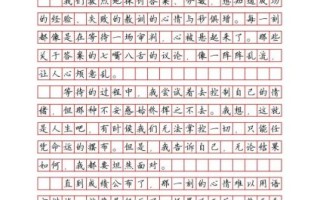 我们散点地探讨答案，分数，想知道成功
的经验、失败的教训的心情与秒俱增。每一刻
都像是在等待一场审判，心被悬起来了。那些
关于答案的七嘴八舌的议论，像一阵阵乱流，
让人心烦意乱。
等待的过程中，我尝试着去控制自己的情
绪，但那种不安感始终挥之不去。我想，这就
是人生吧，有时候我们无法掌控一切，只能任
凭命运的摆布。但是，我告诉自己，无论结果
如何，我都要坦然面对。
直到成绩公布了，那一刻的心情难以用语